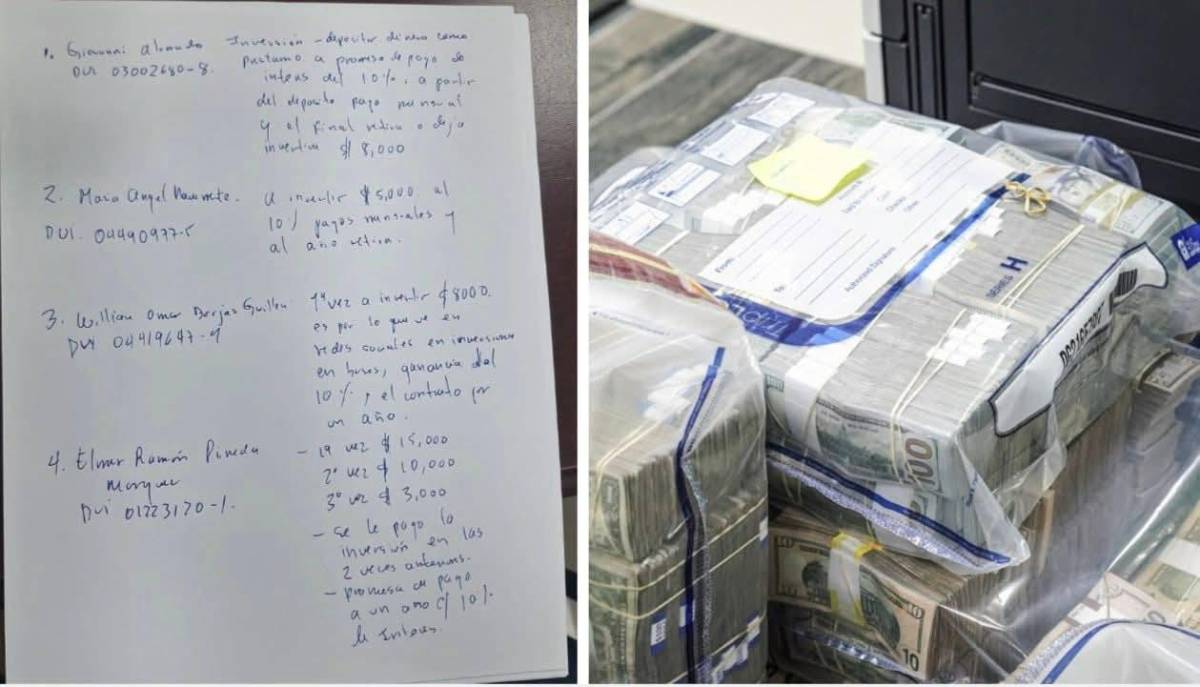 1. Giovanni Alvarado Inversión - depositar dinero como
DUI 03002680-8. prestamo a promesa de pago de
interes del 10%, a partir
del deposito pago mensual
y el final retira o deja
invertiva $ 8,000
2. Maria Angel Navarrete. a invertir $5,000 al
DUI. 04490977-5 10% pagos mensuales y
al año retira.
3. William Omar Borjas Guillen 1ª vez a invertir $8000.
DUI 04419647-9 es por lo que ve en
redes sociales en inversiones
en buses, ganancia del
10%, el contrato por
un año.
4. Elmer Ramón Pineda - 1ª vez $ 15,000
Marquez 2ª vez $ 10,000
DUI 01223170-1. 3ª vez $ 3,000
- se le pago la
inversión en las
2 veces anteriores.
- promesa de pago
a un año c/ 10%
de Interes.
From:
To:
Authorized Signature
Said to contain
Cash
Checks
Other
SERIES H
100
10
10